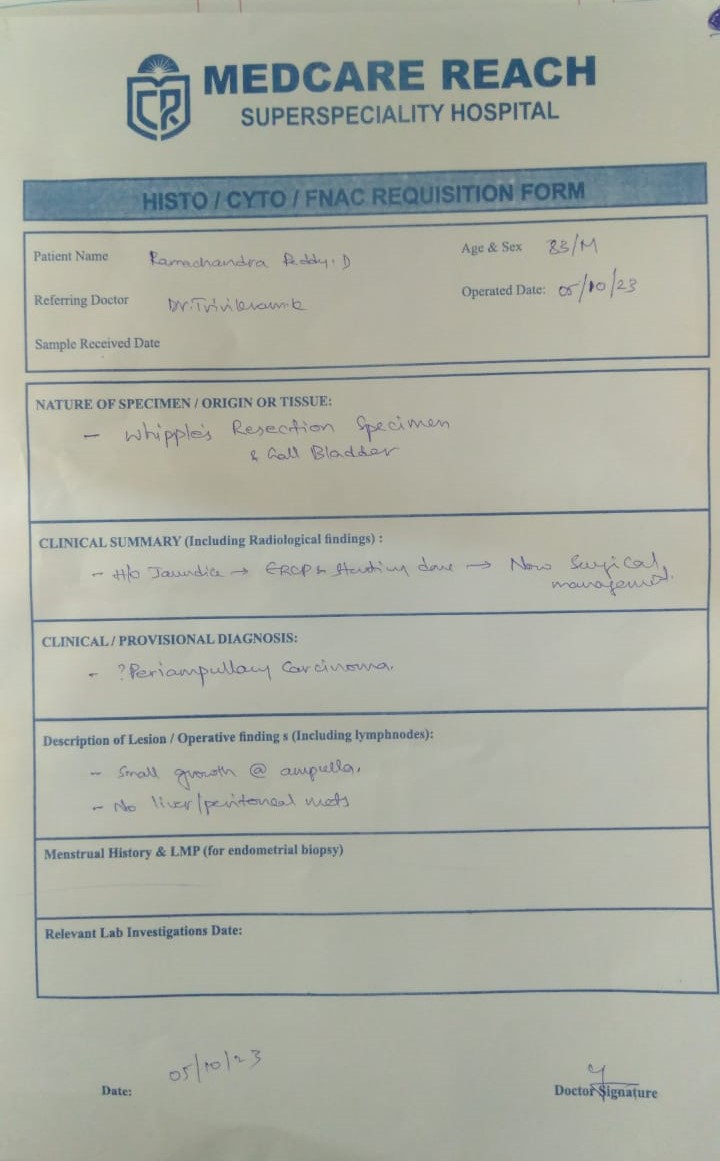 CR
MEDCARE REACH
SUPERSPECIALITY HOSPITAL
HISTO / CYTO / FNAC REQUISITION FORM
Patient Name Ramachandra Reddy. D
Age & Sex 83/M
Referring Doctor Dr. Trivikram. k
Operated Date: 05/10/23
Sample Received Date
NATURE OF SPECIMEN / ORIGIN OR TISSUE:
- Whipple's Resection Specimen
& Gall Bladder
CLINICAL SUMMARY (Including Radiological findings) :
- H/o Jaundice → ERCP & Stenting done → Now Surgical
management.
CLINICAL / PROVISIONAL DIAGNOSIS:
- ? Periampullary Carcinoma.
Description of Lesion / Operative finding s (Including lymphnodes):
- Small growth @ ampulla.
- No liver/peritoneal mets
Menstrual History & LMP (for endometrial biopsy)
Relevant Lab Investigations Date:
Date: 05/10/23
Doctor Signature